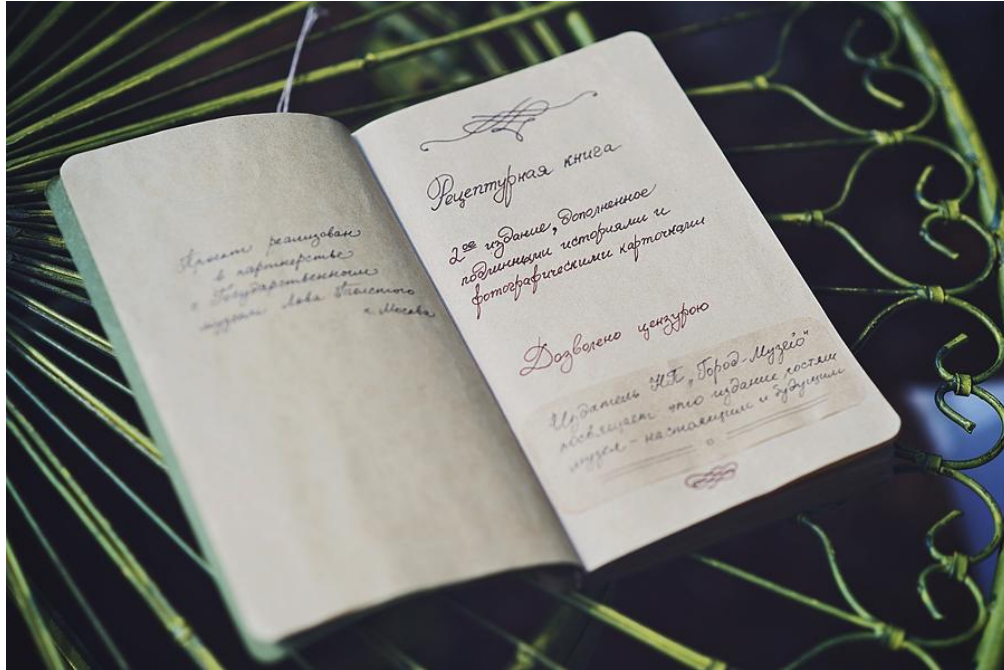 Проект реализован
в партнерстве
с Государственным
музеем Льва Толстого
г. Москва
Рецептурная книга
2ое издание, дополненное
подлинными историями и
фотографическими карточками
Дозволено цензурою
Издатель НП „Город-Музей"
посвящает это издание гостям
музея – настоящим и будущим